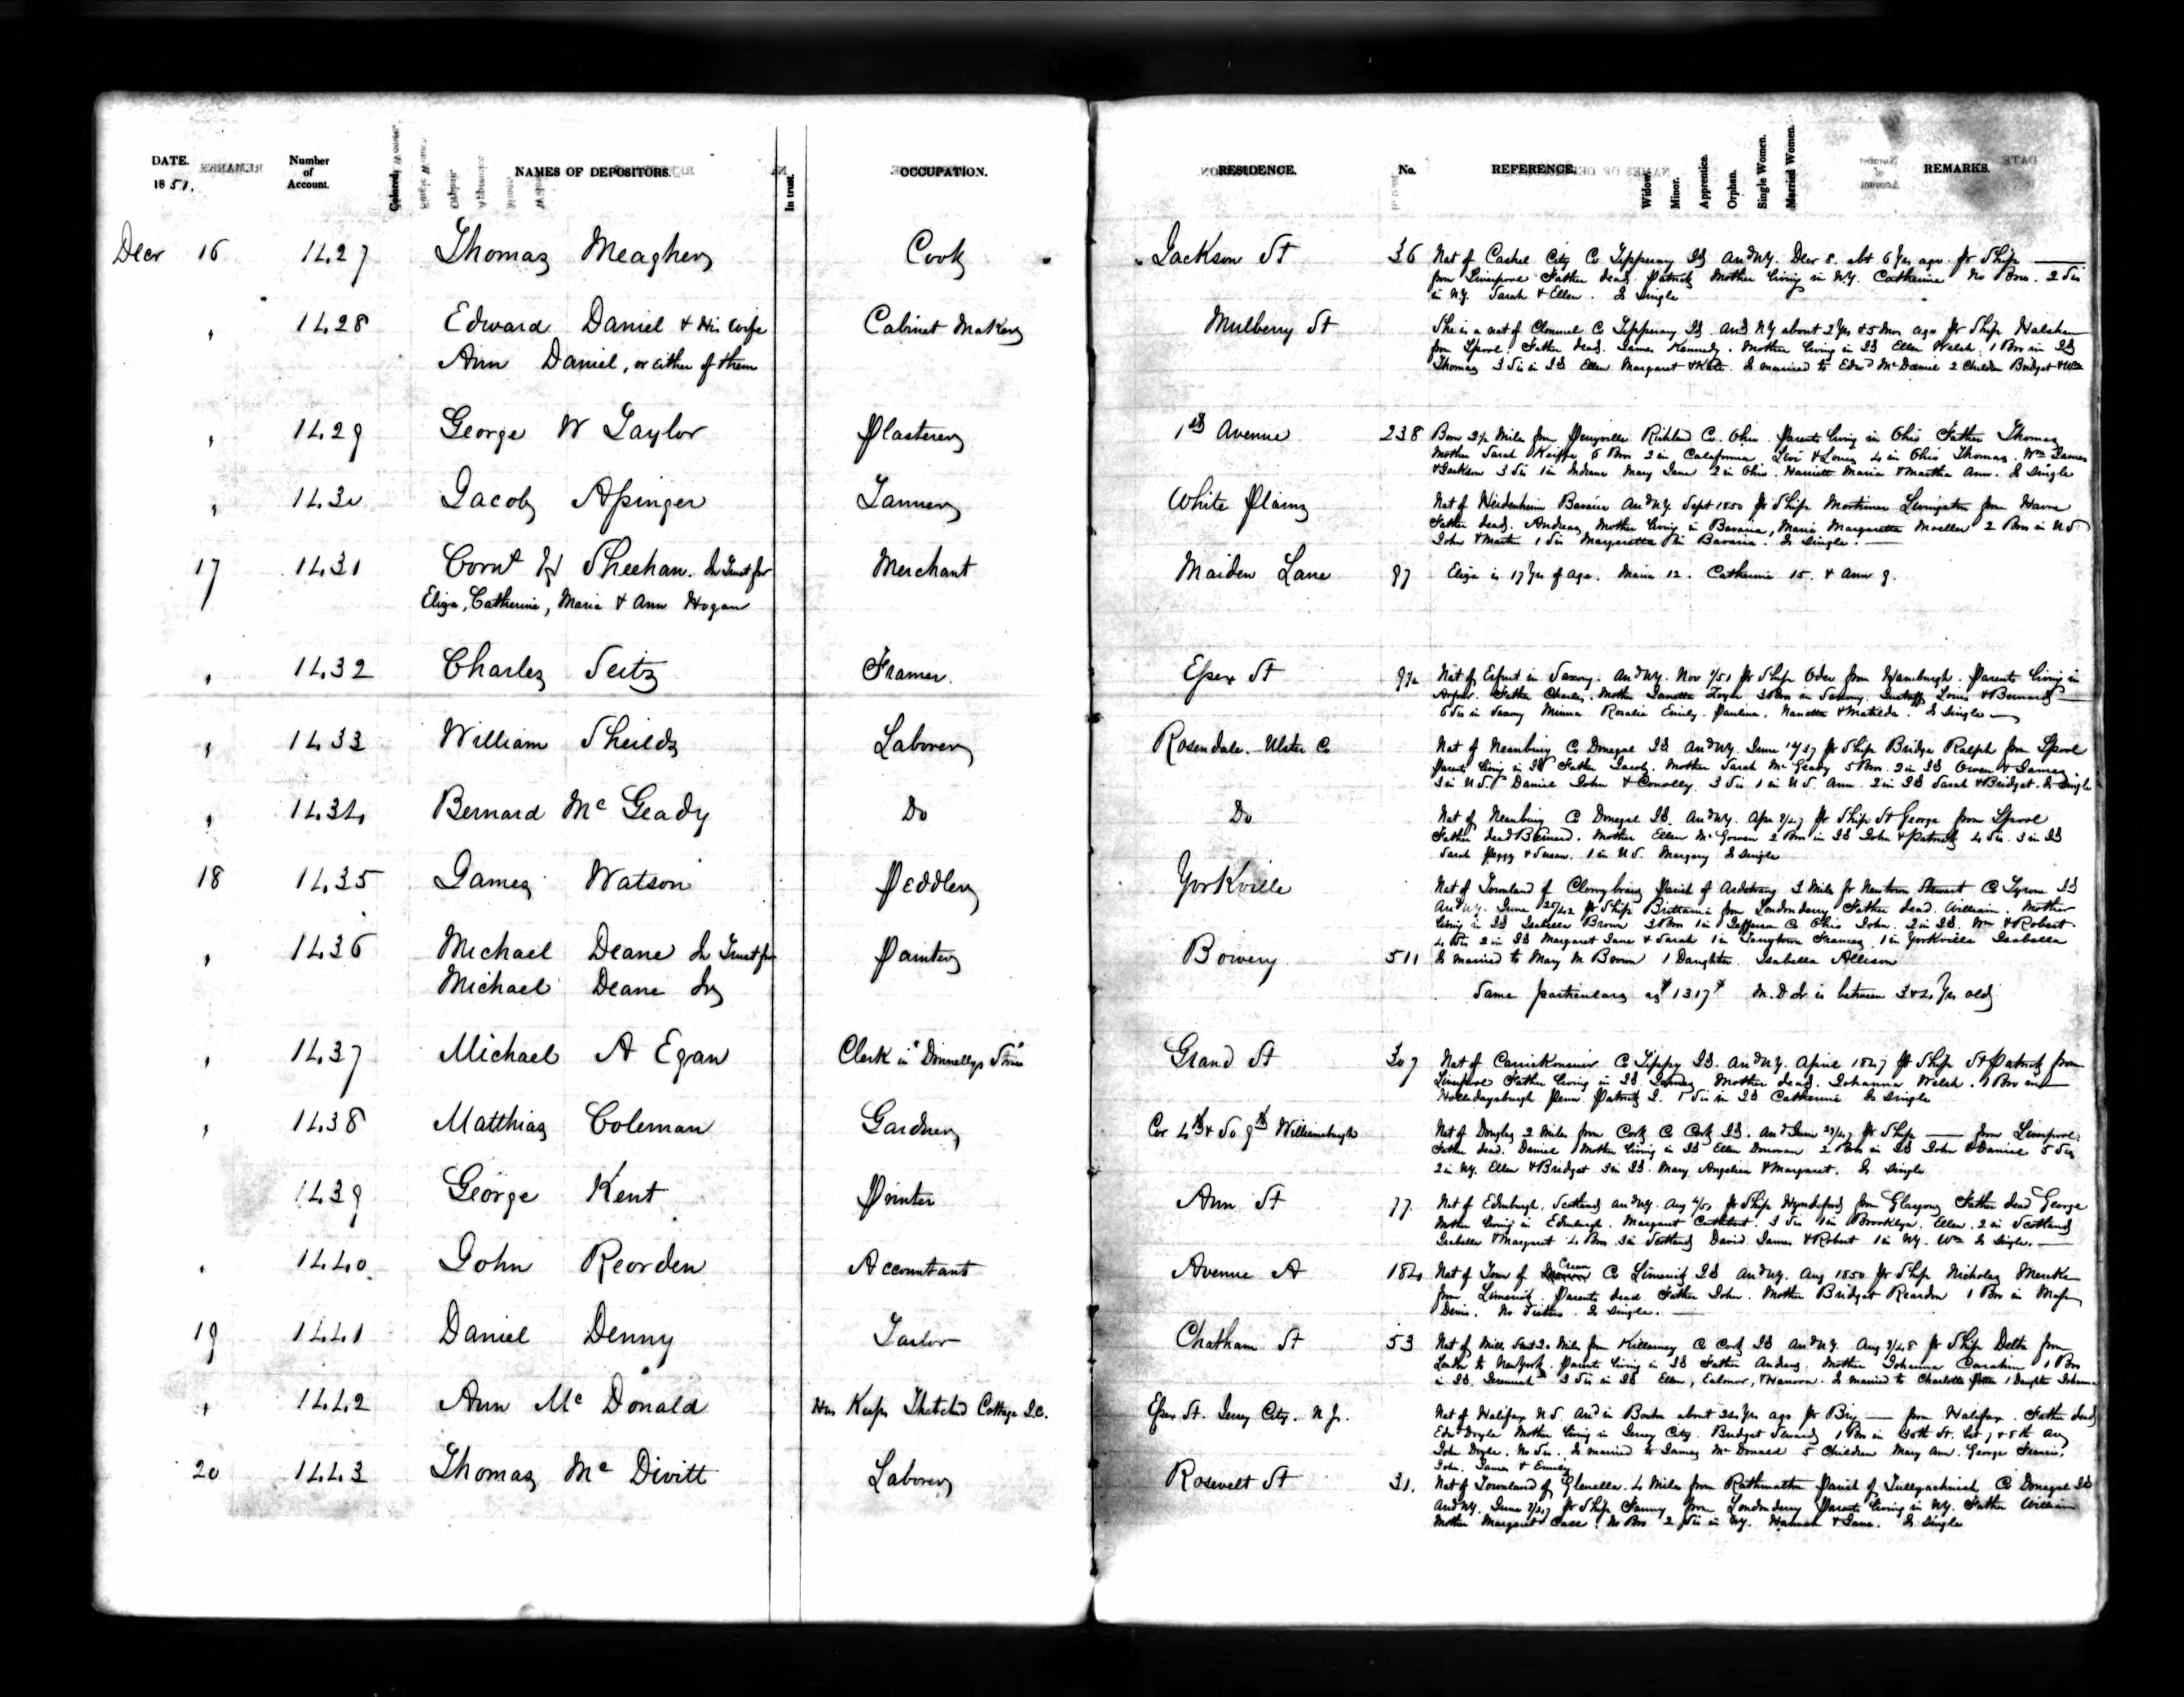 DATE. Number of Account. Colored. NAMES OF DEPOSITORS. In trust. OCCUPATION. RESIDENCE. No. REFERENCE. Widow. Minor. Apprentice. Orphan. Single Women. Married Women. REMARKS.
1851.
Decr 16 1427 Thomas Meagher Cook Jackson St 36 Nat of Cashel City Co Tipperary Id Ard NY. Decr 8. abt 6 Yrs ago. pr Ship ——
from Liverpool Father dead. Patrick Mother living in N.Y. Catherine No Bros. 2 Sis
in N.Y. Sarah & Ellen. Is Single
" 1428 Edward Daniel & His Wife Cabinet Maker Mulberry St She is a nat of Clonmel Co Tipperary Id. Ard NY about 2 Yrs & 5 Mos ago pr Ship
Ann Daniel, or either of them from Lpool. Father dead. James Kennedy. Mother living in Id Ellen Welsh. 1 Bro in Id
Thomas 3 Sis in Id Ellen Margaret & Kate. Is married to Edwd McDaniel 2 Children Bridget & Wm
" 1429 George W Taylor Plasterer 1st Avenue 238 Born 2½ Miles from Perryville Richland Co. Ohio. Parents living in Ohio Father Thomas
Mother Sarah 6 Bros 2 in California Levi & Lewis 4 in Ohio Thomas. Wm James
& Jackson 3 Sis 1 in Indiana Mary Jane 2 in Ohio. Harriett Maria & Martha Ann. Is Single
" 1430 Jacob Assinger Tanner White Plains Nat of Heidenheim Bavaria Ard NY. Sept 1850 pr Ship Mortimer Livingston from Havre
Father dead. Andreas, Mother living in Bavaria, Maria Margaretta Moeller 2 Bros in U S
John & Martin 1 Sis Margaretta in Bavaria. Is Single. —
17 1431 Corns H Sheehan. In Trust for Merchant Maiden Lane 97 Eliza is 17 Yrs of age. Maria 12. Catherine 15. & Ann 9.
Eliza, Catherine, Maria & Ann Hogan
" 1432 Charles Seitz Framer. Essex St Nat of Erfurt in Saxony. Ard NY. Nov 1/51 pr Ship Oder from Hamburgh. Parents living in
Father Charles. Mother 3 Bros in Saxony. Gustaff Louis & Bernard
6 Sis in Saxony Minna Rosalie Emily. Paulina. Nanette & Matilda. Is Single —
" 1433 William Sheilds Laborer Rosendale. Ulster Co Nat of Co Donegal Id Ard NY. June pr Ship Bridge Ralph from Lpool
Parents living in Id Father Jacob. Mother Sarah McGeady 5 Bros. 2 in Id Owen & James
3 in U S. Daniel John & Conolly 3 Sis 1 in U S. Ann. 2 in Id Sarah & Bridget. Is Single
" 1434 Bernard McGeady Do Do Nat of Co Donegal Id. Ard NY. Apr 2/47 pr Ship St George from Lpool
Father dead Bernard. Mother Ellen McGowen 2 Bros in Id John & Patrick 4 Sis. 3 in Id
Sarah Peggy & Susan. 1 in U S. Margery Is Single
18 1435 James Watson Peddler Yorkville Nat of Townland of Parish of Ardstraw 3 Miles fr Newtown Stewart Co Tyrone Id
Ard NY. June 25/42 pr Ship Brittania from Londonderry Father dead. William. Mother
living in Id Isabella Brown 3 Bros 1 in Jefferson Co Ohio John. 2 in Id. Wm & Robert.
4 Sis 2 in Id Margaret Jane & Sarah 1 in Tarrytown Frances 1 in Yorkville Isabella
Is married to Mary M Brown 1 Daughter Isabella Allison
" 1436 Michael Deane In Trust for Painter Bowery 511
Michael Deane Jr Same particulars as "1317" M. D Jr is between 3 & 4 Yrs old
" 1437 Michael A Egan Clerk in "Donnellys Store" Grand St 307 Nat of Co Tippy Id. Ard NY. April 1847 pr Ship St Patrick from
Liverpool Father living in Id James Mother dead. Johanna Welsh. 1 Bro in
Hollidaysburgh Penn Patrick J. 1 Sis in Id Catherine Is Single
" 1438 Matthias Coleman Gardner Cor 4th & So 9th Williamsburgh Nat of Douglas 2 Miles from Cork Co Cork Id. Ard June 27/47 pr Ship —— from Liverpool.
Father dead. Daniel Mother living in Id Ellen Donovan 2 Bros in Id John & Daniel 5 Sis
2 in NY. Ellen & Bridget 3 in Id. Mary Angelina & Margaret. Is Single
1439 George Kent Printer Ann St 77. Nat of Edinburgh, Scotland Ard NY. Aug pr Ship from Glasgow Father dead George
Mother living in Edinburgh. Margaret Cuthbert. 3 Sis 1 in Brooklyn. Ellen. 2 in Scotland
Isabella & Margaret 4 Bros 3 in Scotland David James & Robert 1 in NY. Wm Is Single. —
" 1440 John Reorden Accountant Avenue A 184 Nat of Town of Croom Co Limerick Id Ard NY. Aug 1850 pr Ship Nicholas
from Limerick. Parents dead. Father John. Mother Bridget Reardon 1 Bro in Mass
Denis. No Sisters. Is Single. —
19 1441 Daniel Denny Tailor Chatham St 53 Nat of Mill 20 Miles from Killarney Co Cork Id Ard NY. Aug 9/48 pr Ship Delta from
London to New York. Parents living in Id Father Andrew. Mother Johanna 1 Bro
in Id. Jeremiah 3 Sis in Id Ellen, & Hanora. Is married to Charlotte 1 Daughter Johanna
" 1442 Ann McDonald Hus Keeps Thatched Cottage J.C. Essex St. Jersey City. N J. Nat of Halifax N S. Ard in Boston about 24 Yrs ago pr Brig —— from Halifax. Father dead
Edwd Doyle Mother living in Jersey City. Bridget 1 Bro in 30th St. bet 7 & 8th Av
John Doyle. No Sis. Is married to James McDonald 5 Children Mary Ann. George Francis,
John. James & Emily
20 1443 Thomas McDivitt Laborer Rosevelt St 31. Nat of Townland of Glenalla. 4 Miles from Rathmullen Parish of Co Donegal Id
Ard NY. June pr Ship Fanny from Londonderry Parents living in NY. Father William
Mother Margaret Case. No Bro 2 Sis in NY. Hannah & Jane. Is Single